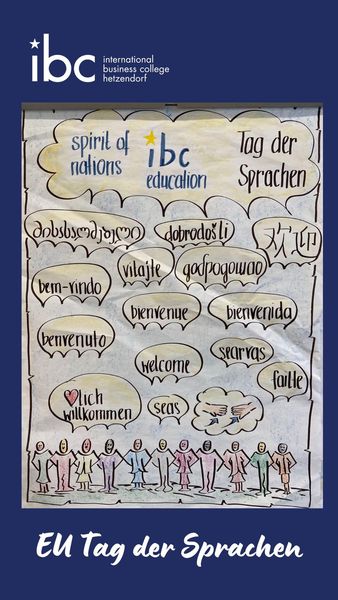 ibc
international
business college
hetzendorf
spirit of
nations
ibc
education
Tag der
Sprachen
dobrodošli
欢迎
bem-vindo
vitajte
добродошао
bienvenue
bienvenida
benvenuto
welcome
searvas
failte
lich
willkommen
seas
EU Tag der Sprachen